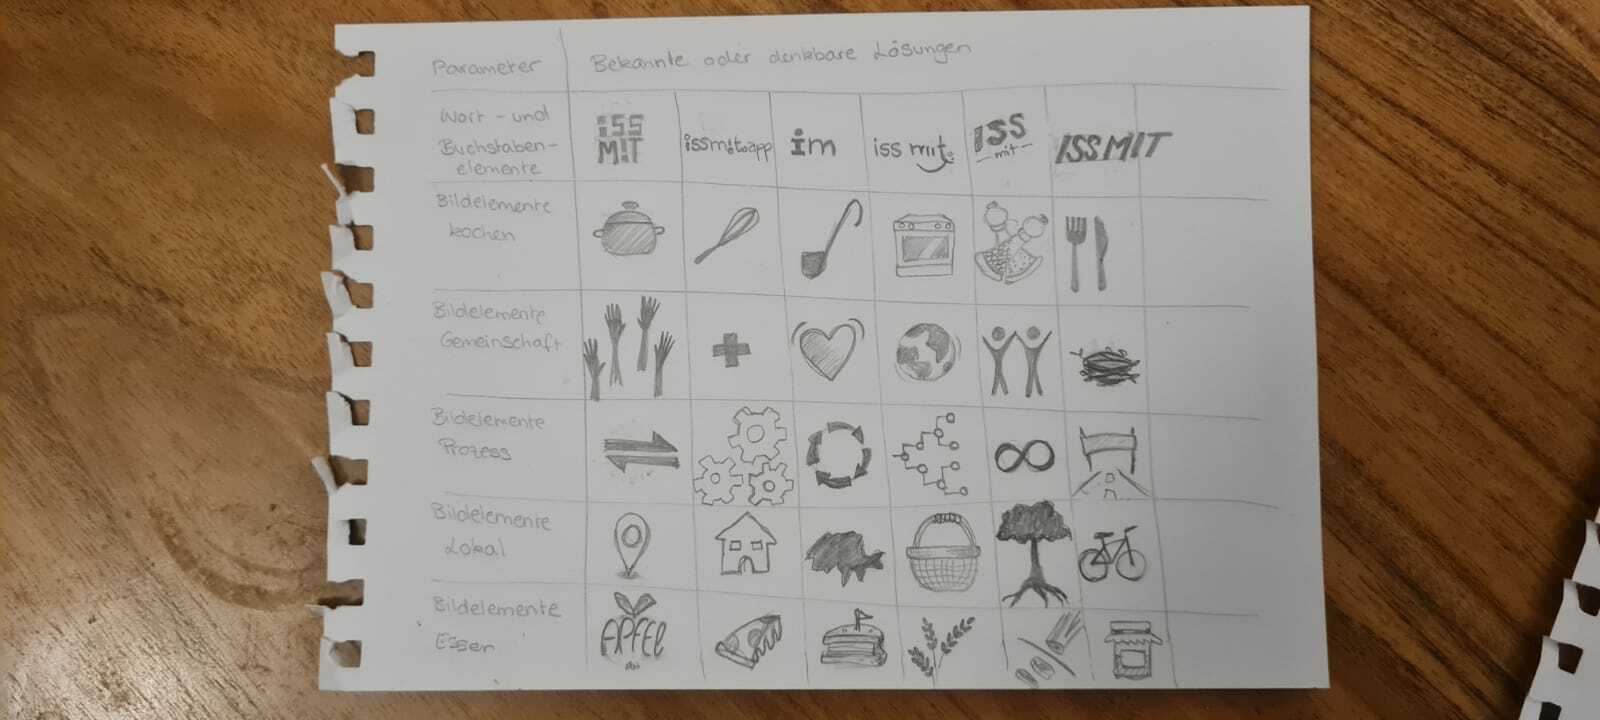 Parameter
Bekannte oder denkbare Lösungen
Wort- und
Buchstaben-
elemente
iss
MIT
issmit.app
im
iss mit.
ISS
-mit-
ISSMIT
Bildelemente
kochen
Bildelemente
Gemeinschaft
Bildelemente
Prozess
Bildelemente
Lokal
Bildelemente
Essen
APFEL